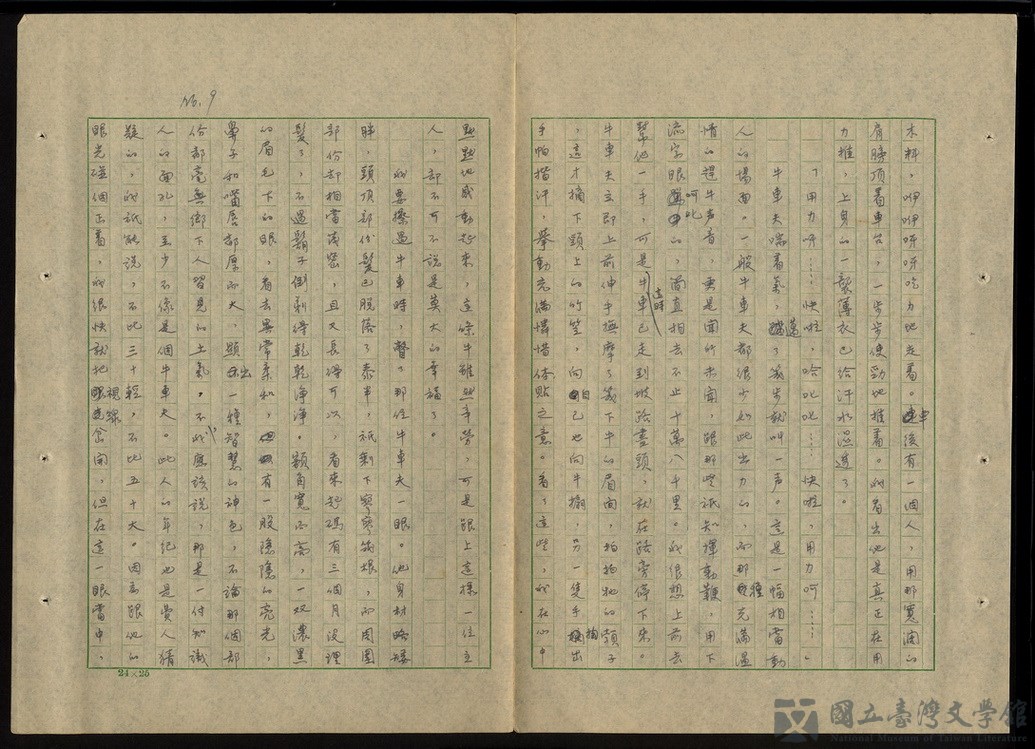 No. 9
木料,呷呷呀呀吃力地走着。車後有一個人,用那寬闊的
肩膀頂着車台,一步步使勁地推着。我看出他是真正在用
力推,上身的一襲薄衣已給汗水濕透了。
「用力呀……快啦,哈叱叱……快啦,用力呵……」
牛車夫喘着氣,邁了幾步就叫一聲。這是一幅相當動
人的場面。一般牛車夫都很少如此出力的,而那種充滿溫
情的趕牛声音,更是聞所未聞,跟那些祇知揮動鞭,用下
流字眼呵叱的,簡直相去不止十萬八千里。我很想上前去
幫他一手,可是這時牛車已走到坡路盡頭,就在路旁停下來。
牛車夫立即上前伸手撫摩了幾下牛的眉間,拍拍牠的頸子
,這才摘下頭上的竹笠,向自己也向牛搧,另一隻手掏出
手帕揩汗,舉動充滿憐惜体貼之意。看了這些,我在心中
默默地感動起來,這條牛雖然辛勞,可是跟上這樣一位主
人,卻不可不說是莫大的幸福了。
我要擦過牛車時,瞥了那位牛車夫一眼。他身材略矮
胖,頭頂部份髮已脫落了泰半,祇剩下寥寥幾根,而周圍
部份却相當茂密,且又長得可以,看來起碼有三個月沒理
髮了,不過鬍子倒剃得乾乾淨淨。額角寬而高,一双濃黑
的眉毛下的眼,看去異常柔和,有一股隱隱的亮光,
鼻子和嘴唇都厚而大,顯出一種智慧的神色,不論那個部
份都毫無鄉下人習見的土氣,不,我應該說,那是一付知識
人的面孔,至少不像是個牛車夫。此人的年紀也是費人猜
疑的,我祇能說,不比三十輕,不比五十大。因為跟他的
眼光碰個正着,我很快就把視線岔開,但在這一眼當中,
24×25
國立臺灣文學館
National Museum of Taiwan Literature